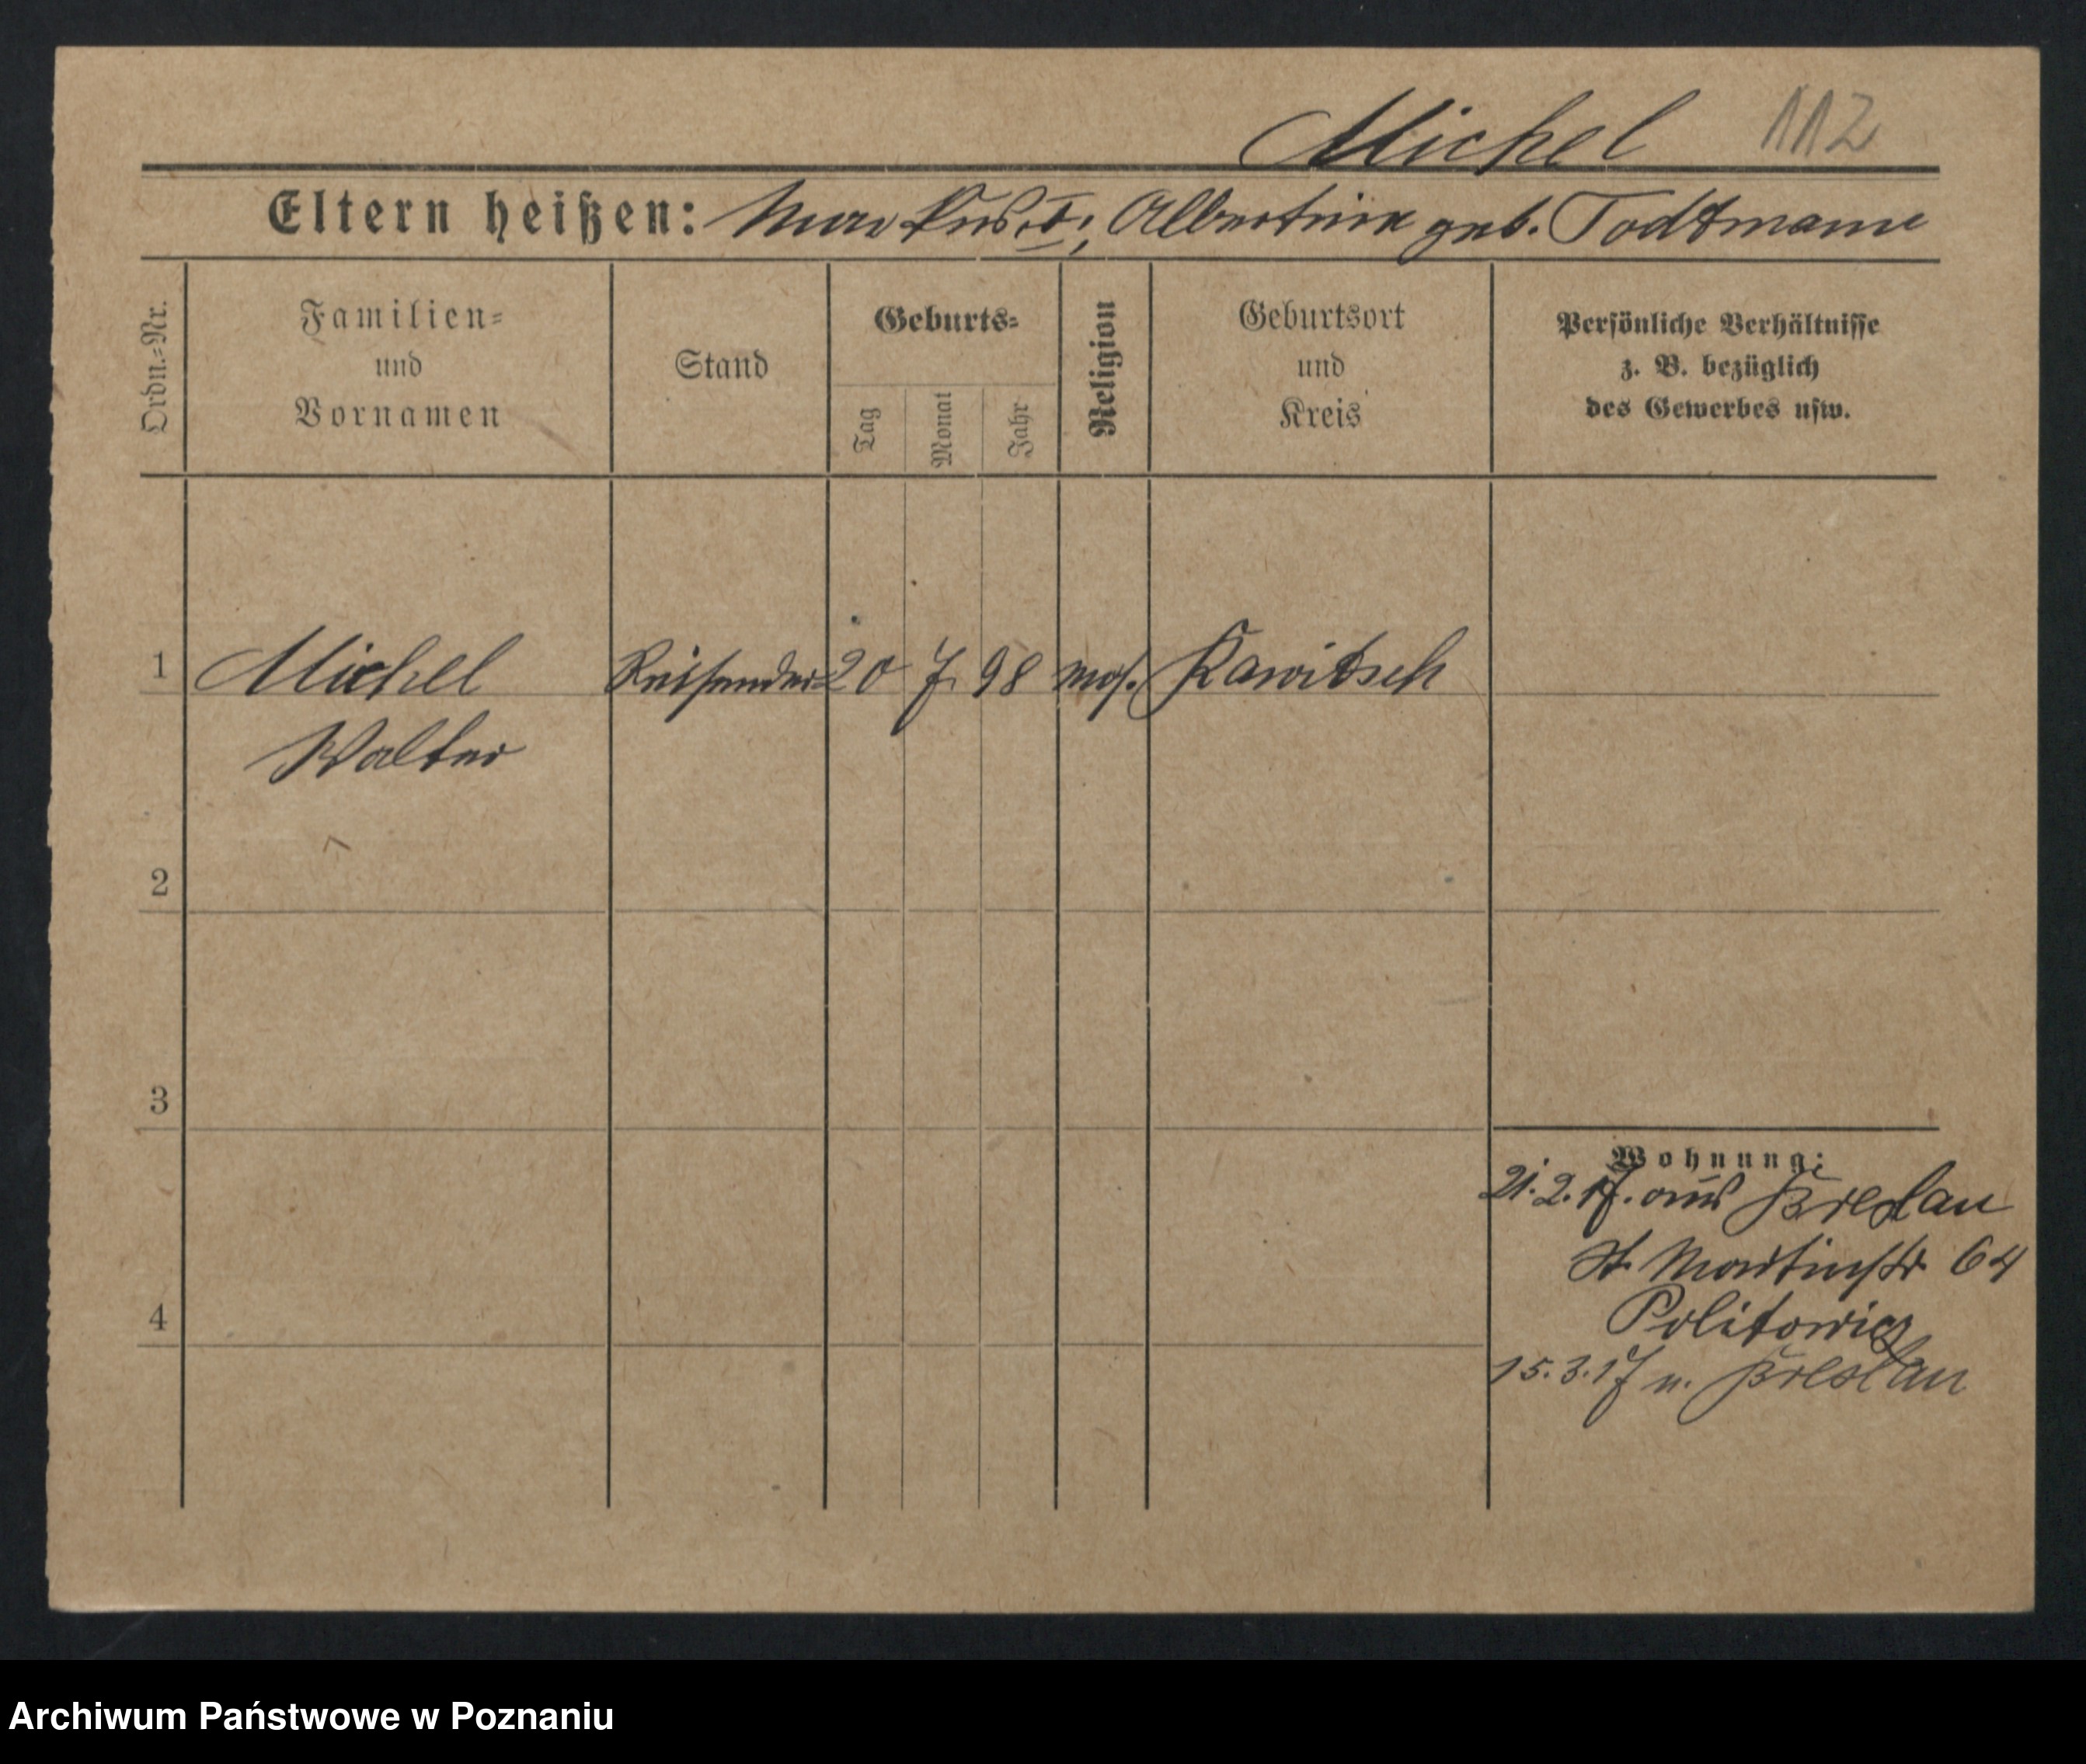 Michel 112
Eltern heißen: Markus u. Albertine geb. Todtmann
Ordn.-Nr.
Familien-
und
Vornamen
Stand
Geburts-
Tag
Monat
Jahr
Religion
Geburtsort
und
Kreis
Persönliche Verhältnisse
z. B. bezüglich
des Gewerbes usw.
1 Michel Reisender 20 7. 98 mos. Rawitsch
Walter
2
3
Wohnung:
21.2.17. aus Breslau
St. Martinstr 64
4 Politowicz
15.3.17 n. Breslau
Archiwum Państwowe w Poznaniu